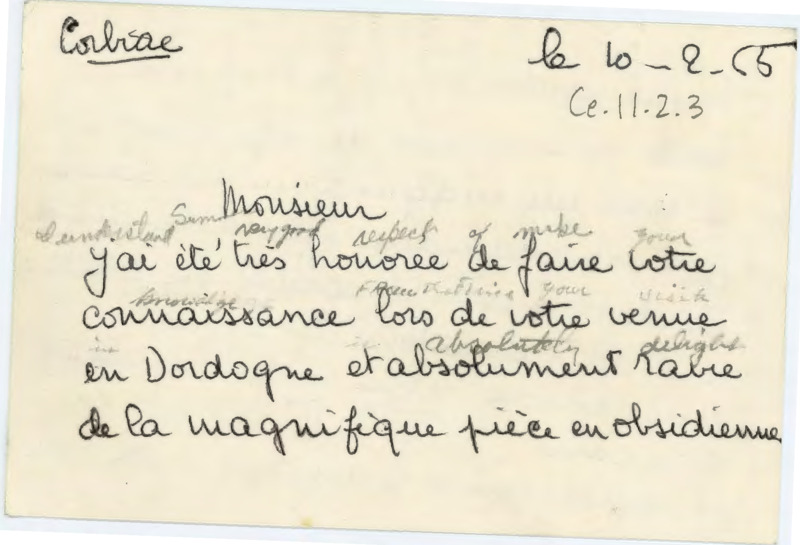 Corbiac
le 10-2-65
Ce.11.2.3
Monsieur
I understand very good respect of make your
j'ai été très honorée de faire votre
knowledge your visit
connaissance lors de votre venue
in absolutely delight
en Dordogne et absolument ravie
de la magnifique pièce en obsidienne